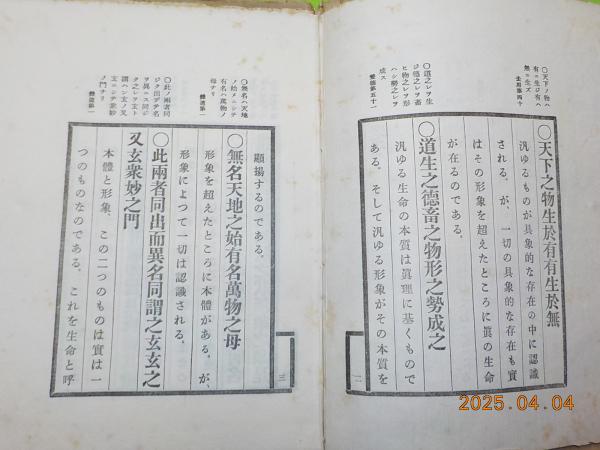 〇天下ノ物ハ
有ニ生ジ有ハ
無ニ生ズ
去用第四十
〇天下之物生於有有生於無
汎ゆるものが具象的な存在の中に認識
される。が、一切の具象的な存在も實
はその形象を超えたところに眞の生命
が在るのである。
〇道之レヲ生
ジ德之レヲ畜
ヒ物之レヲ形
ハシ勢之レヲ
成ス
養德第五十一
〇道生之德畜之物形之勢成之
汎ゆる生命の本質は眞理に基くもので
ある。そして汎ゆる形象がその本質を
二
顯揚するのである。
〇無名ハ天地
ノ始メニシテ
有名ハ萬物ノ
母ナリ
體道第一
〇無名天地之始有名萬物之母
形象を超えたところに本體がある。が、
形象によつて一切は認識される。
〇此ノ兩者同
ジク出デテ名
ヲ異ニス同ジ
ク之レヲ玄ト
謂ハン玄ノ又
玄ニシテ衆妙
ノ門ナリ
體道第一
〇此兩者同出而異名同謂之玄玄之
又玄衆妙之門
本體と形象、この二つのものは實は一
つのものなのである。これを生命と呼
三
2025.04.04